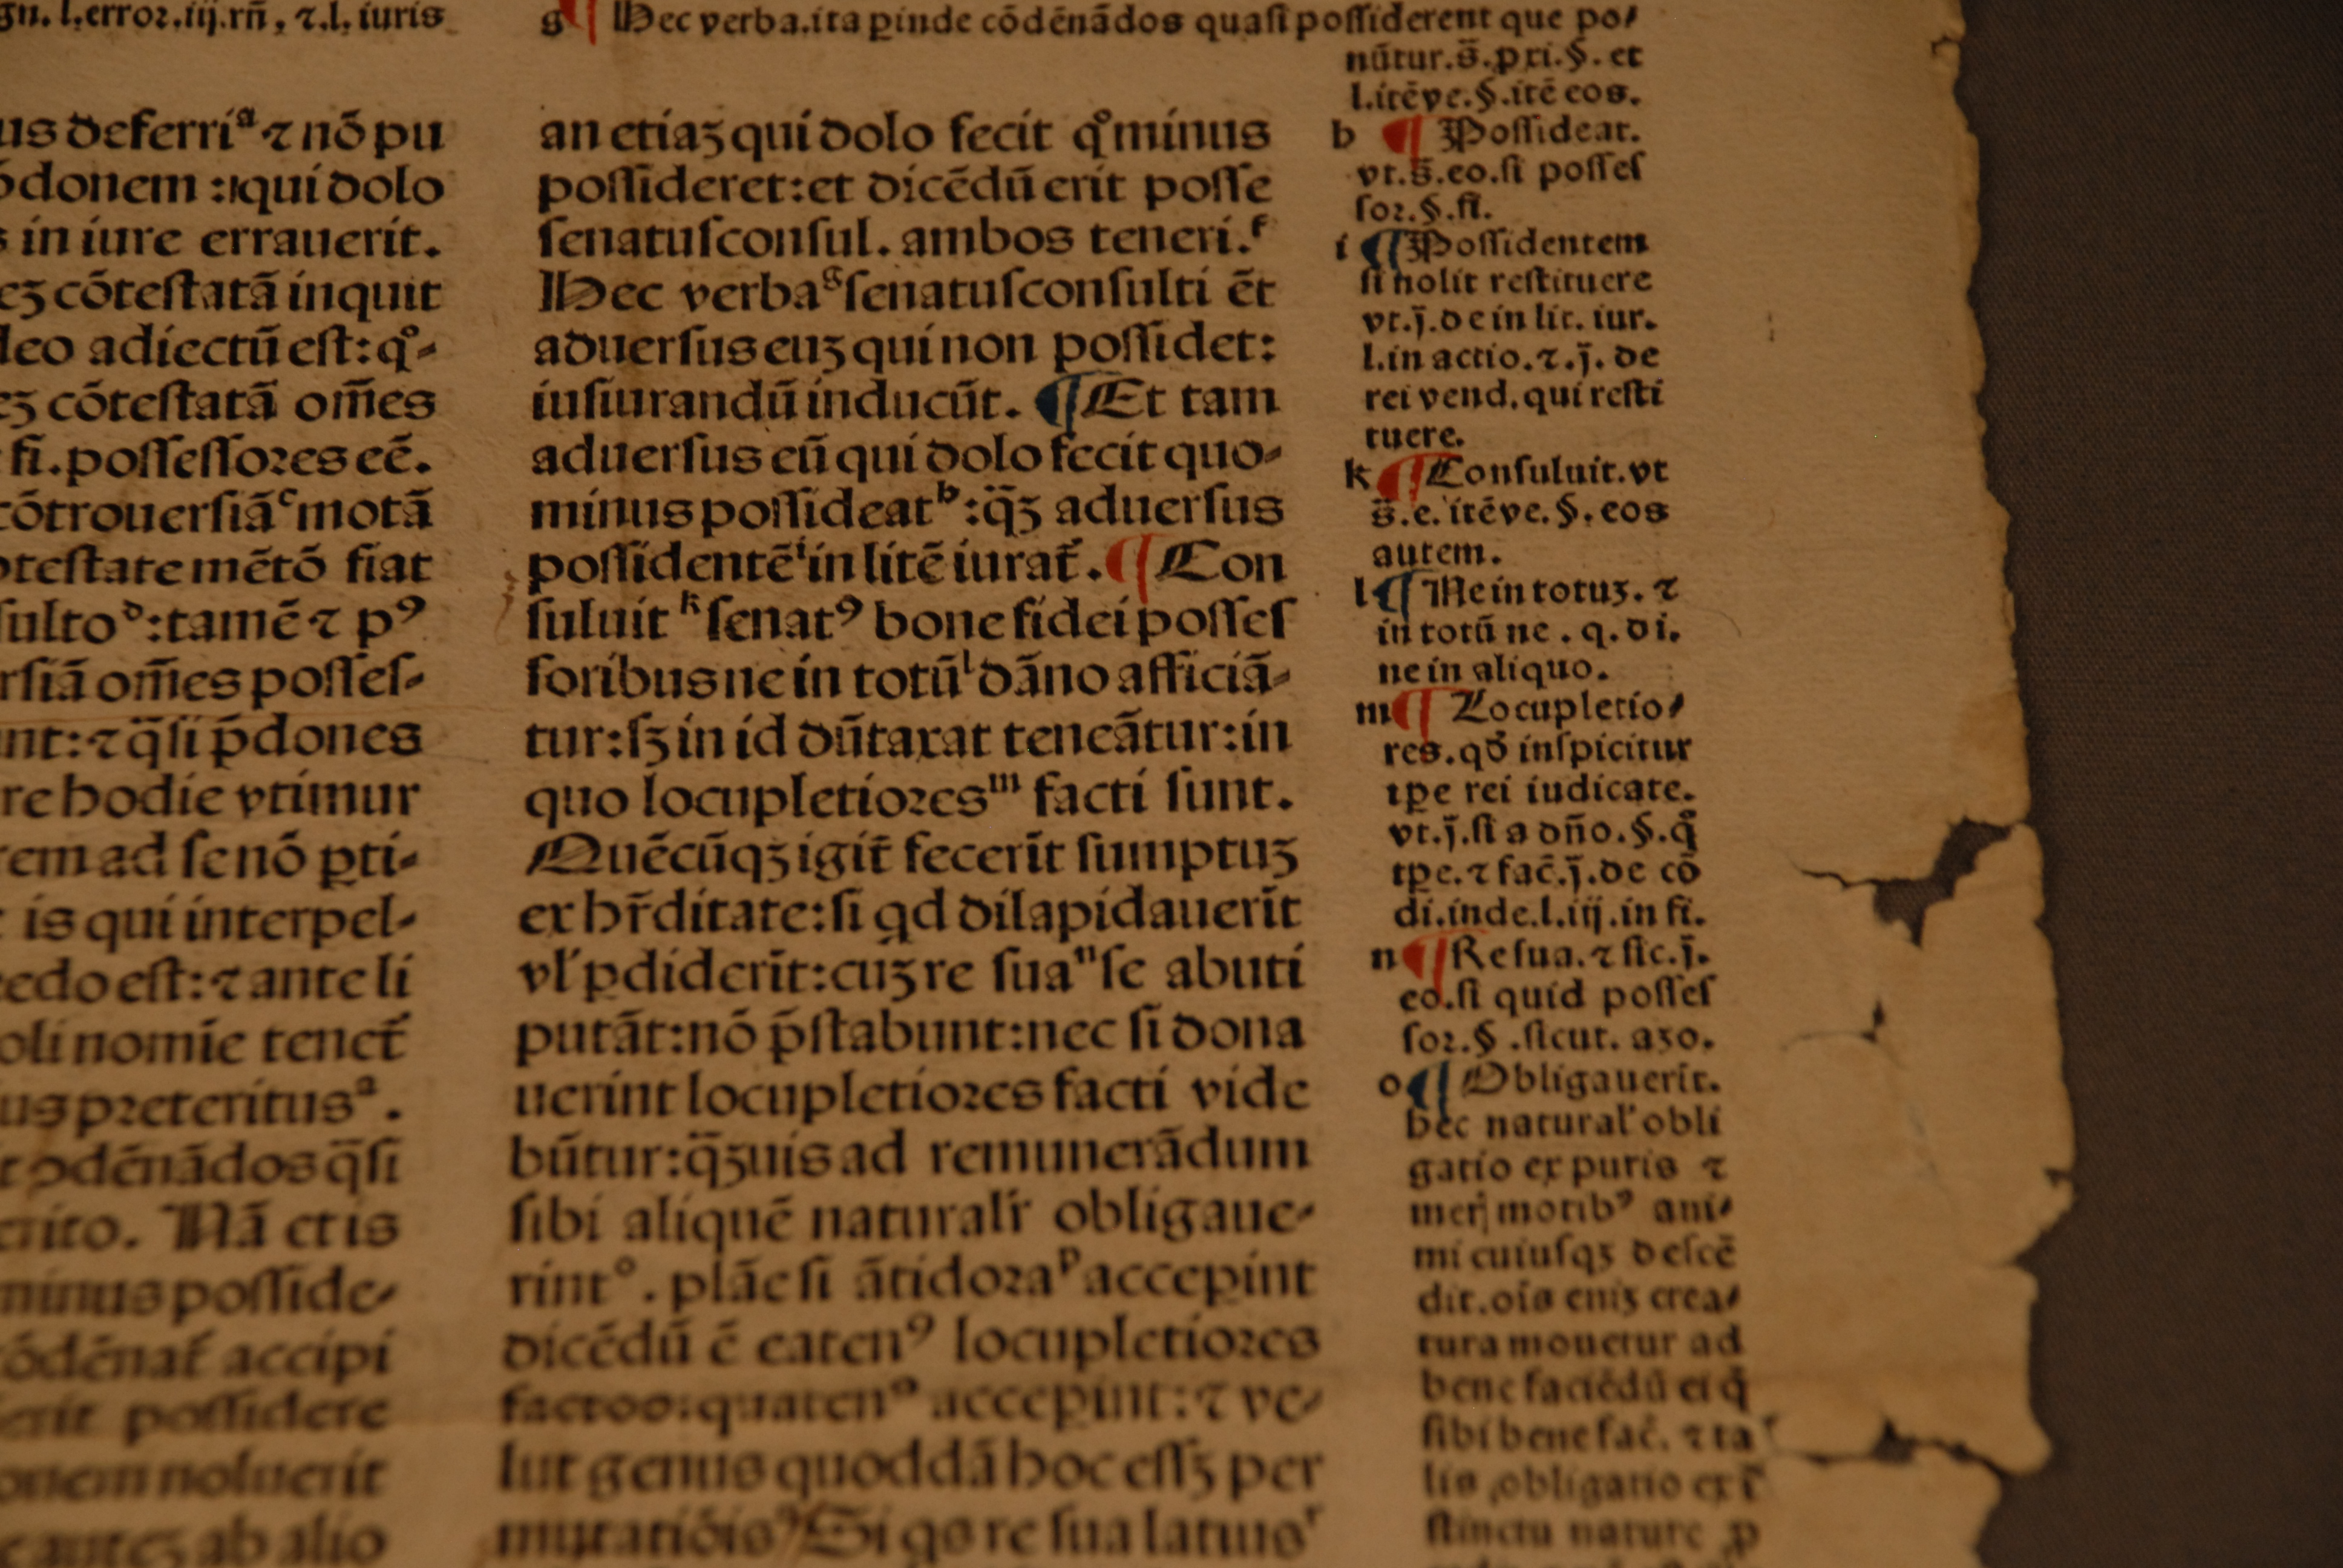 gn. l. erroꝛ. iij. rñ, ⁊. l. iuris
us deferriª ⁊ nō pu
ōdonem : qui dolo
s in iure errauerit.
eꝫ cōteſtatā inquit
deo adiectū eſt: qº-
eꝫ cōteſtatā om̄es
fi. poſſeſſoꝛes eē.
cōtrouerſiāᶜ motā
oteſtate mētō fiat
ſultoᵈ: tamē ⁊ pꝰ
rſiā om̄es poſſeſ-
unt: ⁊ q̄ſi p̄dones
re hodie vtimur
rem ad ſe nō ꝑti-
is qui interpel-
edo eſt: ⁊ ante li
oli nomīe tenet᷑
us pꝛeteritusª.
ꝯdēnādos q̄ſi
erito. Nā et is
minus poſſide-
ōdēnat᷑ accipi
erit poſſidere
onem noluerit
autēꝫ ab alio
g ¶ Hec verba. ita ꝑinde cōdēnādos quaſi poſſiderent que po/
nūtur. s̄. pri. §. et
l. itēve. §. itē eos.
an etiaꝫ qui dolo fecit qº minus
poſſideret: et dicēdū erit poſſe
ſenatuſconſul. ambos teneri.ᶠ
Hec verbaᵍ ſenatuſconſulti ēt
aduerſus euꝫ qui non poſſidet:
iuſiurandū inducūt. ¶ Et tam
aduerſus eū qui dolo fecit quo-
minus poſſideatʰ: q̄ꝫ aduerſus
poſſidentēⁱ in litē iurat᷑. ¶ Con
ſuluitᵏ ſenatꝰ bone fidei poſſeſ
ſoribus ne in totūˡ dāno afficiā-
tur: ſꝫ in id dūtaxat teneātur: in
quo locupletioꝛesᵐ facti ſunt.
Quēcūqꝫ igit᷑ fecerīt ſumptuꝫ
ex hr̄ditate: ſi qd dilapidauerīt
vl̓ ꝑdiderīt: cuꝫ re ſuaⁿ ſe abuti
putāt: nō p̄ſtabunt: nec ſi dona
uerint locupletioꝛes facti vide
būtur: q̄ꝫuis ad remunerādum
ſibi aliquē naturalr̓ obligaue-
rintº. plāe ſi ātidoꝛaᵖ acceꝑint
dicēdū ē eatenꝰ locupletioꝛes
factos: quatenꝰ acceꝑint: ⁊ ve-
lut genus quoddā hoc eſſꝫ per
mutatiōis Si qs re ſua latiusʳ
h ¶ Poſſideat.
vt. s̄. eo. ſi poſſeſ
ſoꝛ. §. fi.
i ¶ Poſſidentem
ſi nolit reſtituere
vt. j̄. de in lit. iur.
l. in actio. ⁊. j̄. de
rei vend. qui reſti
tuere.
k ¶ Conſuluit. vt
s̄. e. itēve. §. eos
autem.
l ¶ Ne in totuꝫ. ⁊
in totū ne. q. di.
ne in aliquo.
m ¶ Locupletio/
res. qđ inſpicitur
tꝑe rei iudicate.
vt. j̄. ſi a dño. §. q̊
tꝑe. ⁊ fac̄. j̄. de cō
di. inde. l. iij. in fi.
n ¶ Re ſua. ⁊ ſic. j̄.
eo. ſi quid poſſeſ
ſoꝛ. §. ſicut. aʒo.
o ¶ Obligauerit.
hec natural̓ obli
gatio ex puris ⁊
merj motibꝰ ani/
mi cuiuſqꝫ deſcē
dit. oīs eniꝫ crea/
tura mouetur ad
bene faciēdū ei q̄
ſibi bene fac̄. ⁊ ta
lis obligatio ex ī
ſtinctu nature ꝓ